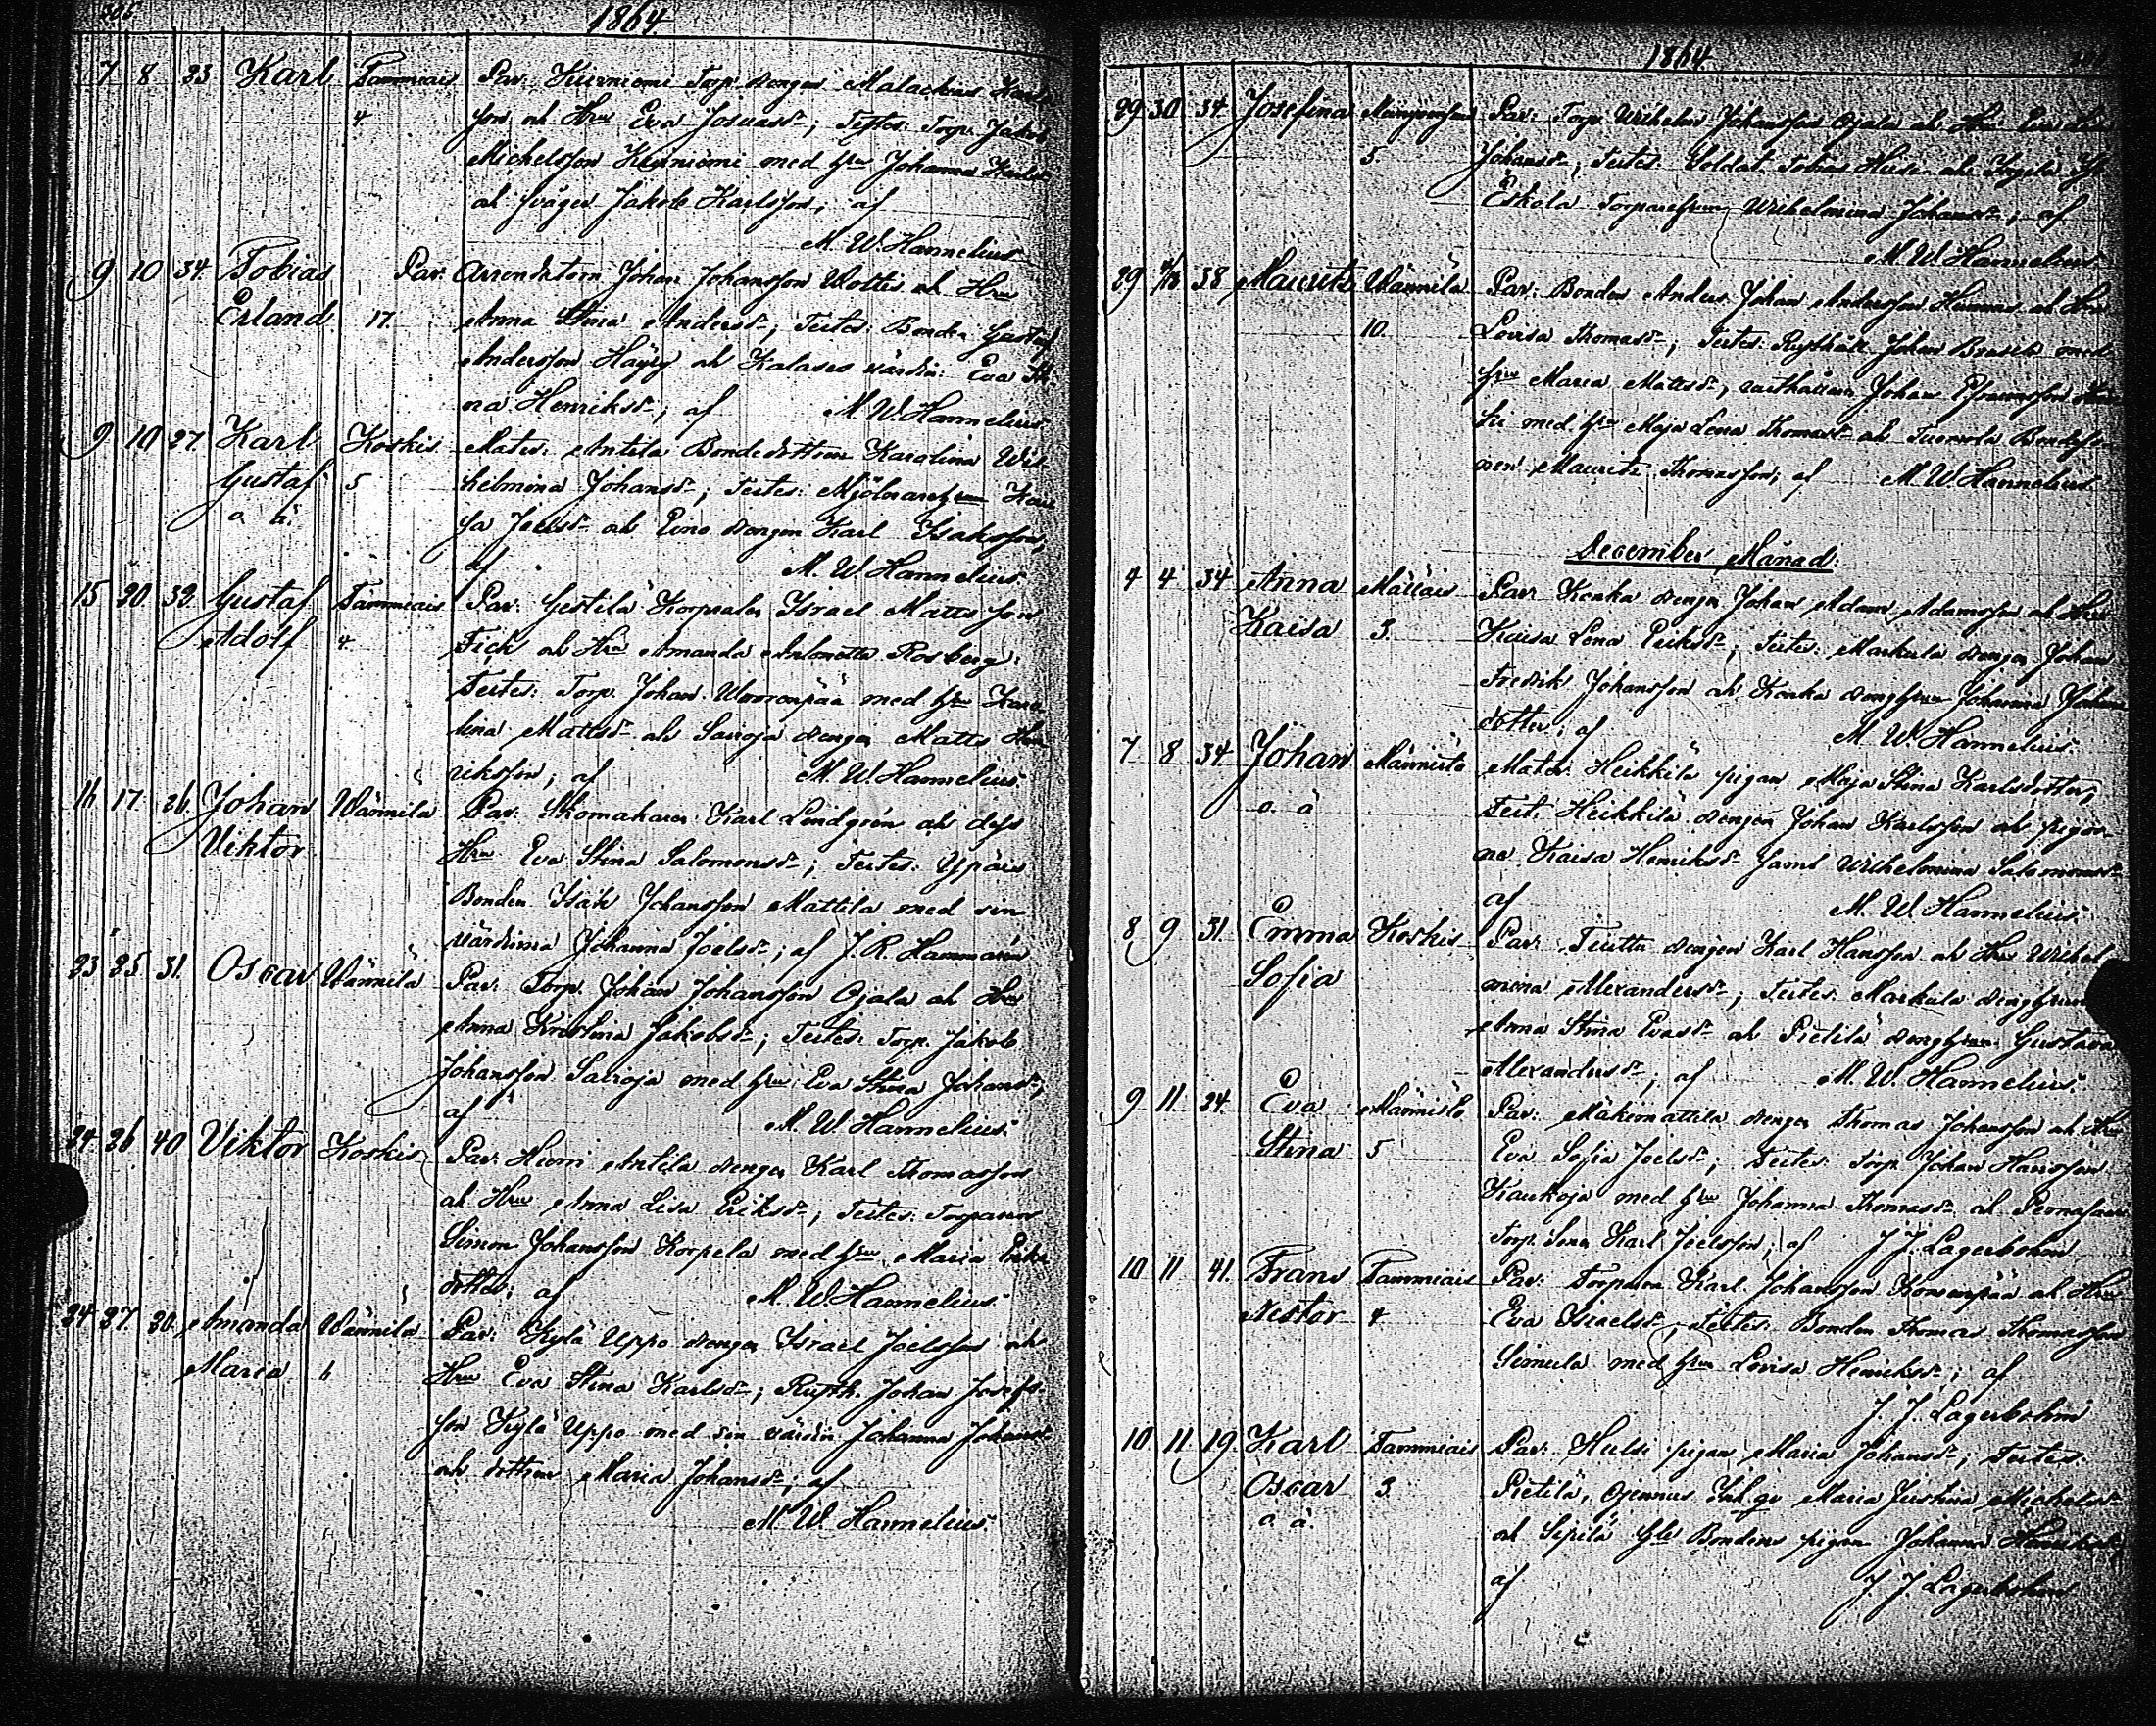 306
1864
7 8 33 Karl Tammiais Par: Kurniemi Torp. drengen Malachias
4 son och Hru Eva Josuasdr; Testes: Torp. Jakob
Michelsson Kurniemi med hru Johanna
och svåger Jakob Karlsson; af
M. W. Hannelius
9 10 34 Tobias Par: Arrendatorn Johan Johansson och Hru
Erland 17. Anna Stina Andersdr; Testes: Bonden Gustaf
Andersson och Kalases värdin: Eva Sti
na Henriksdr; af M. W. Hannelius
9 10 27. Karl Koskis Mater: Antila Bondedottren Karolina Wil
Gustaf 5 helmina Johansdr; Testes: Mjölnarehrun
o. ä. Joelsdr och drengen Karl Isaksson,
af M. W. Hannelius
15 20 32. Gustaf Tammiais Par: Yrstilä Korpraln Israel Matts son
Adolf 4. Fick och Hru Amanda Antonetta Rosberg;
Testes: Torp. Johan Wuorenpää med hru Karo
lina Mattsdr och Sairoja drengen Matts Hen
riksson; af M. W. Hannelius
16 17. 26 Johan Wännilä Par: Skomakaren Karl Lindgrén och dess
Viktor Hru Eva Stina Salomonsdr; Testes: Ypäis
Bonden Isak Johansson Mattila med sin
värdinna Johanna Joelsdr; af J. R. Hammarén
23 25 31. Oscar Wännilä Par: Torp. Johan Johansson Ojala och Hru
Anna Kristina Jakobsdr; Testes: Torp. Jakob
Johansson Sairoja med hru Eva Stina Johansdr;
af M. W. Hannelius.
24. 26 40 Viktor Koskis Par: Hurri Antila drengen Karl Thomasson
och Hru Anna Lisa Eriksdr; Testes: Torparen
Simon Johansson Korpela med hru Maria Eriks
dotter; af M. W. Hannelius.
24 27. 30. Amanda Wännilä Par: Kylä Uppo drengen Israel Joelsson och
Maria 6 Hru Eva Stina Karlsdr; Rusth. Johan Josefs
son Kylä Uppo med sin värdin Johanna Johansdr
och dottren Maria Johansdr; af
M. W. Hannelius.
1864
29 30 34. Josefina 5. Par: Torp. Wilhelm Johansson Ojala och Hru Eva
Johansdr; Testes: Soldat. Tobias
Eskola Torparehrun Wilhelmina Johansdr; af
M. W. Hannelius
29 38 Mauritz Wännilä Par: Bonden Anders Johan Andersson och Hru
10. Lovisa Thomasdr; Testes: Rusthåll. Johan med
hru Maria Mattsdr, rusthållaren Johan Efraimsson
ki med hru Maja Lena Thomasdr och Tuomola Bondeso
nen Mauritz Thomasson; af M. W. Hannelius
December Månad.
4 4 34 Anna Mälläis Par: Konka drengen Johan Adam Adamsson och Hru
Kaisa 3. Kaisa Lena Eriksdr; Testes: Markula drengen Johan
Fredrik Johansson och Konka drenghrun Johanna Johans
dotter; af M. W. Hannelius
7 8 34. Johan Männistö Mater: Heikkilä pigan Maja Stina Karlsdotter;
o. ä Test: Heikkilä drengen Johan Karlsson och pigor
na Kaisa Henriksdr samt Wilhelmina Salomonsdr
af M. W. Hannelius.
8 9 31. Emma Koskis Par: Tuttu drengen Karl Hansson och Hru Wilhel
Sofia mina Alexandersdr; Testes: Markula drenghrun
Anna Stina Evasdr och Pietilä drenghrun Gustava
Alexandersdr; af M. W. Hannelius.
9 11. 24. Eva Männistö Par: Mäkimattila drengen Thomas Johansson och Hru
Stina 5 Eva Sofia Joelsdr; Testes: Torp. Johan Hansson
Kaukoja med hru Johanna Thomasdr och
Torp. sonen Karl Joelsson; af J. J. Lagerbohm
10 11 41. Frans Tammiais Par: Torparen Karl Johansson och Hru
Nestor 4 Eva Israelsdr; Testes: Bonden Thomas Thomasson
Simula med hru Lovisa Henriksdr; af
J. J. Lagerbohm
10 11 19. Karl Tammiais Par: Hulsi pigan Maria Johansdr; Testes:
Oscar 3. Pietilä, Maria Justina Michelsdr
o. ä. och Sipilä Bondens pigan Johanna
af J. J. Lagerbohm